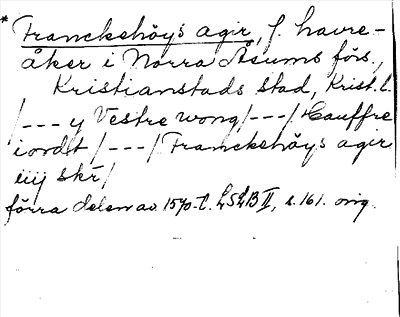 * Franckehöys agir, f. havre-
åker i Norra Åsums förs.,
Kristianstads stad, Krist. l.
/--- y Vestre wong/---/ Hauffre
iordt /---/ Franckehöys agir
iiij skr/
förra delen av 1570-t. LSLB II, s. 161. orig.